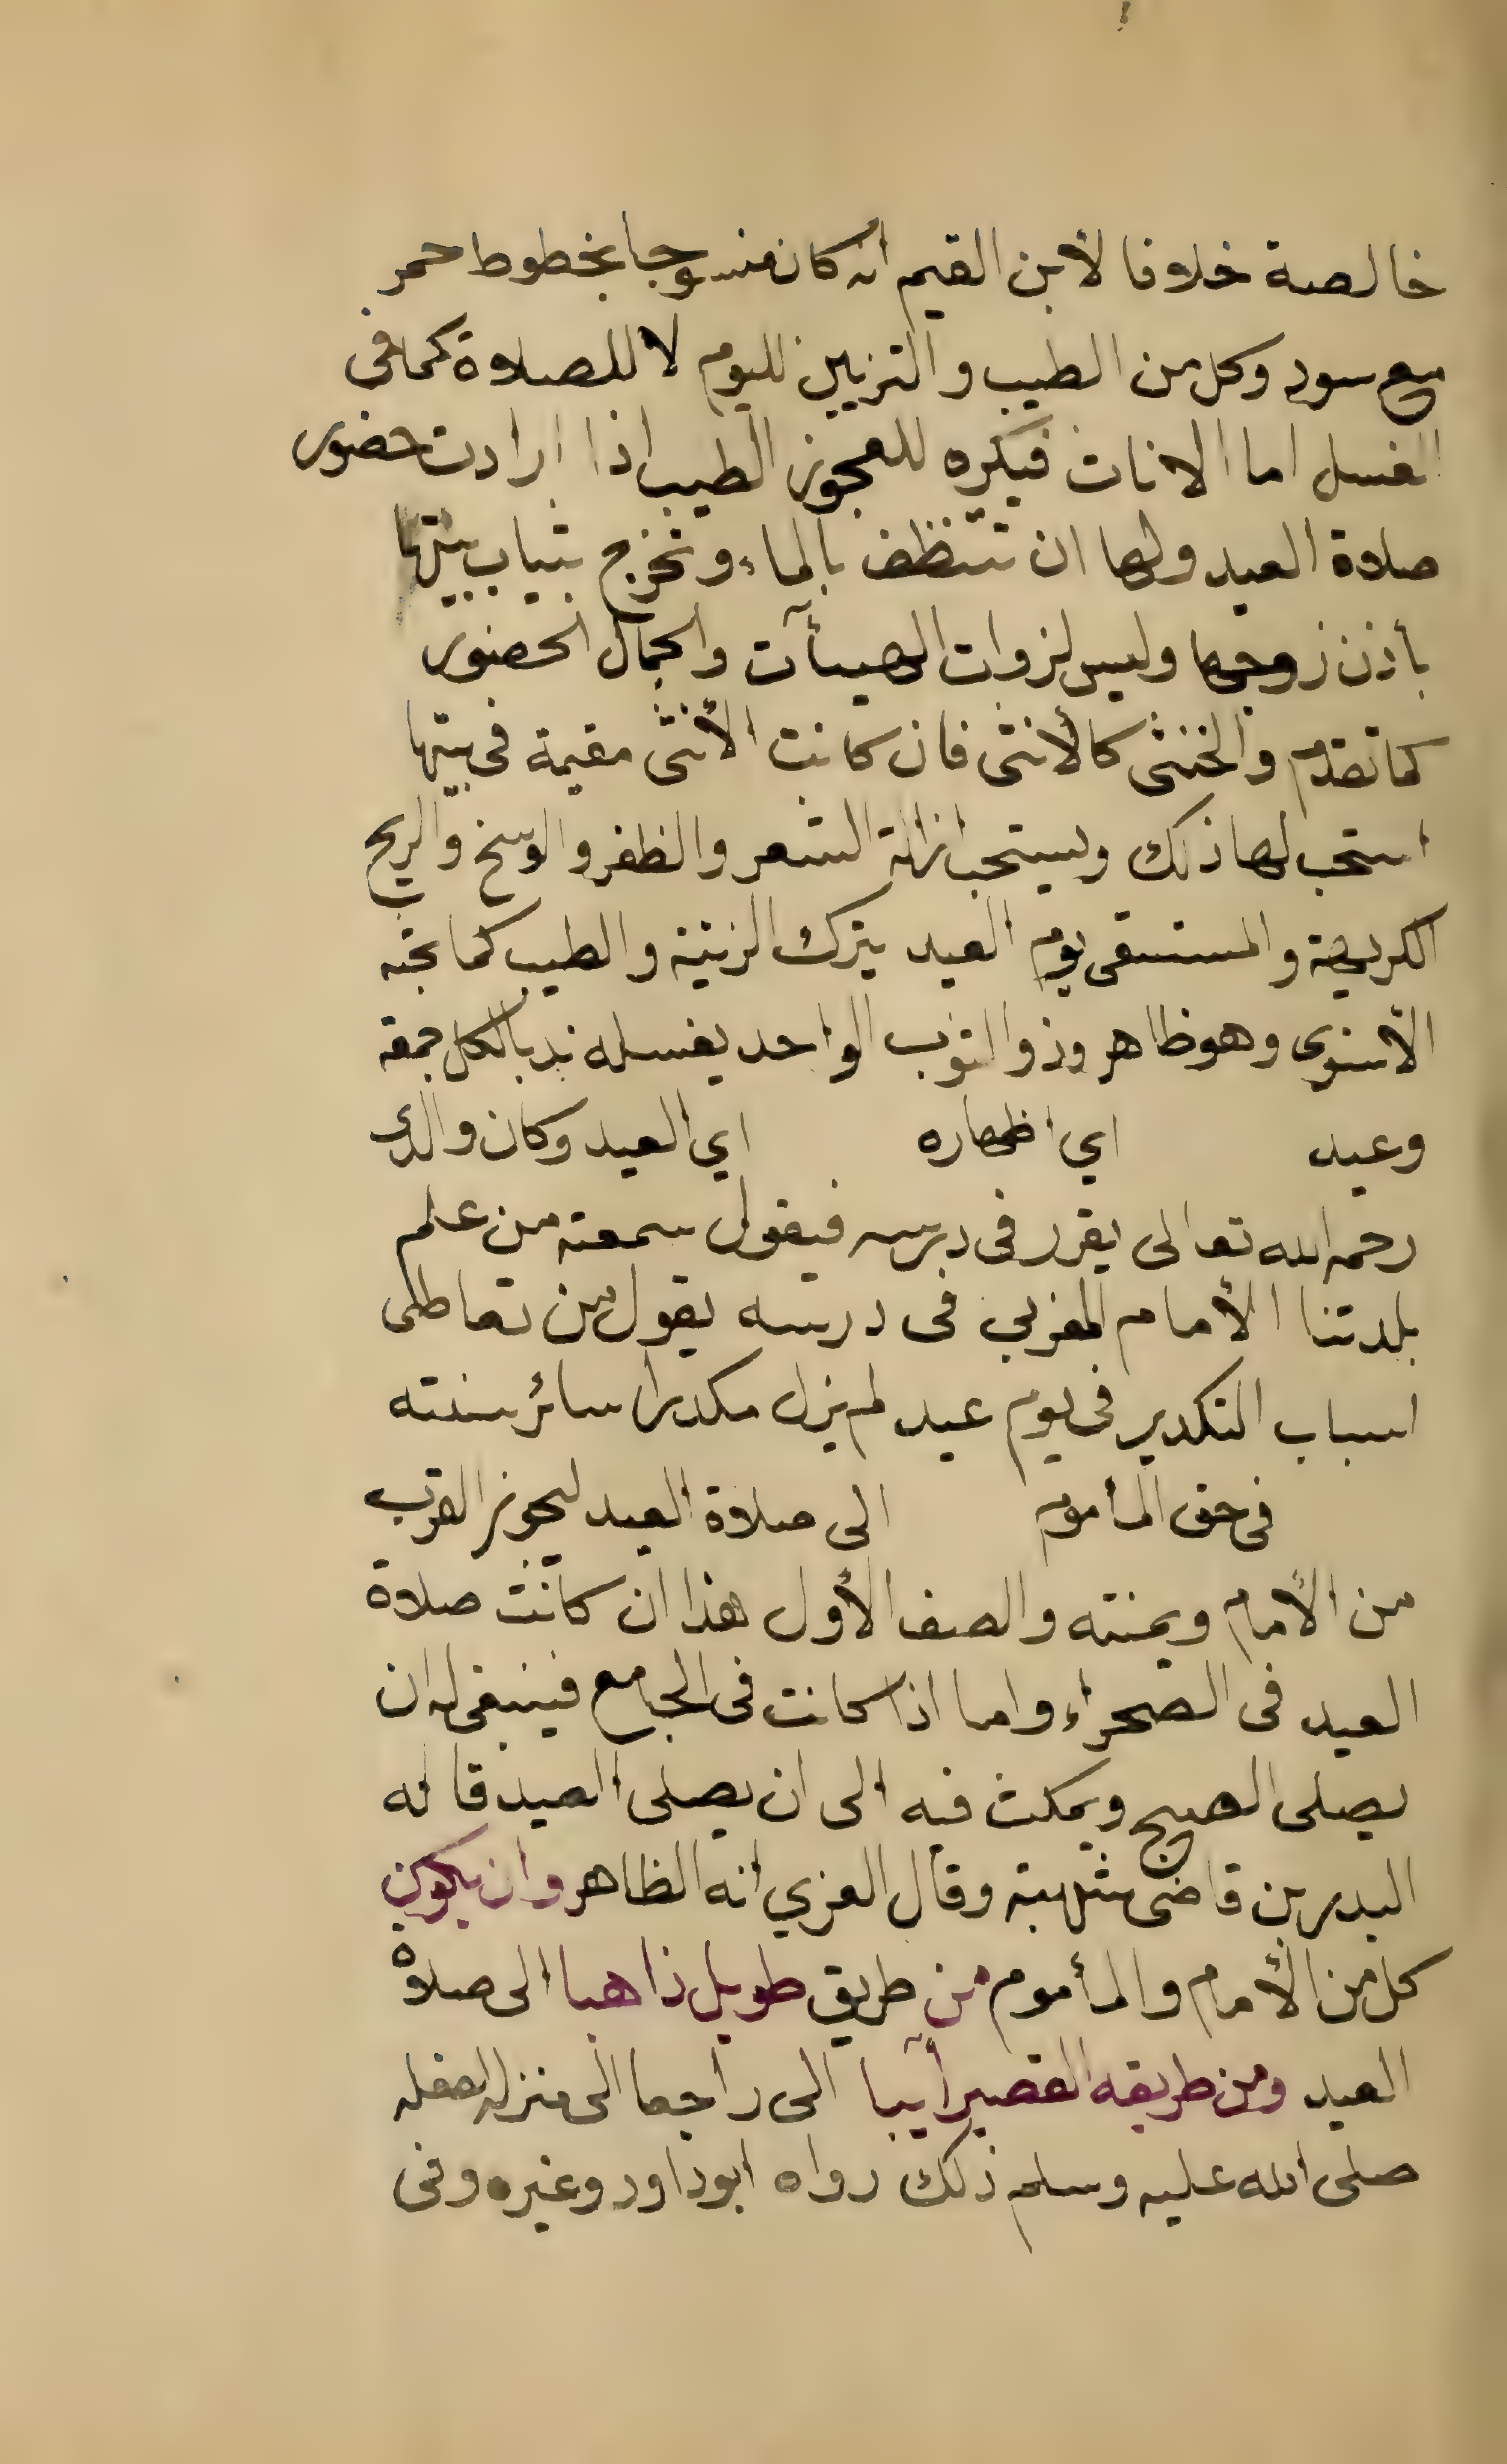 خالصة خلافا لأبن القيم انه كان منسوجا بخطوط حمر
مع سود وكل من الطيب والتزيين لليوم لا للصلاة كما في
الغسل اما الاناث فيكره للعجوز الطيب اذا ارادت حضور
صلاة العيد ولها ان تتنظف بالماء وتخرج بثياب بيتها
بأذن زوجها وليس لزوات الهيأت والجمال الحضور
كما تقدم والخنثى كالأنثى فان كانت الأنثى مقيمة في بيتها
استحب لها ذلك ويستحب ازالة الشعر والظفر والوسخ والريح
الكريهة والمستسقى يوم العيد يترك الزينة والطيب كما بحثه
الأسنوي وهو ظاهر وذو الثوب الواحد يغسله ندبا لكل جمعة
وعيد اي اظهاره اي العيد وكان والدي
رحمه الله تعالى يقرر في درسه فيقول سمعته من علم
بلدتنا الأمام المغربي في درسه يقول من تعاطى
اسباب التكدير في يوم عيد لم يزل مكدرا سائر سنته
في حق المأموم الى صلاة العيد ليحوز القرب
من الأمام ويمنته والصف الأول هذا ان كانت صلاة
العيد في الصحراء واما اذا كانت في الجامع فينبغي له ان
يصلى الصبح ويمكث فيه الى ان يصلى العيد قاله
البدر بن قاضي شهبة وقال الغزي انه الظاهر وان يكون
كل من الأمام والمأموم من طريق طويل ذاهبا الى صلاة
العيد ومن طريقه القصير آيبا الى راجعا الى منزله لفعله
صلى الله عليه وسلم ذلك رواه ابو داود وغيره وفي